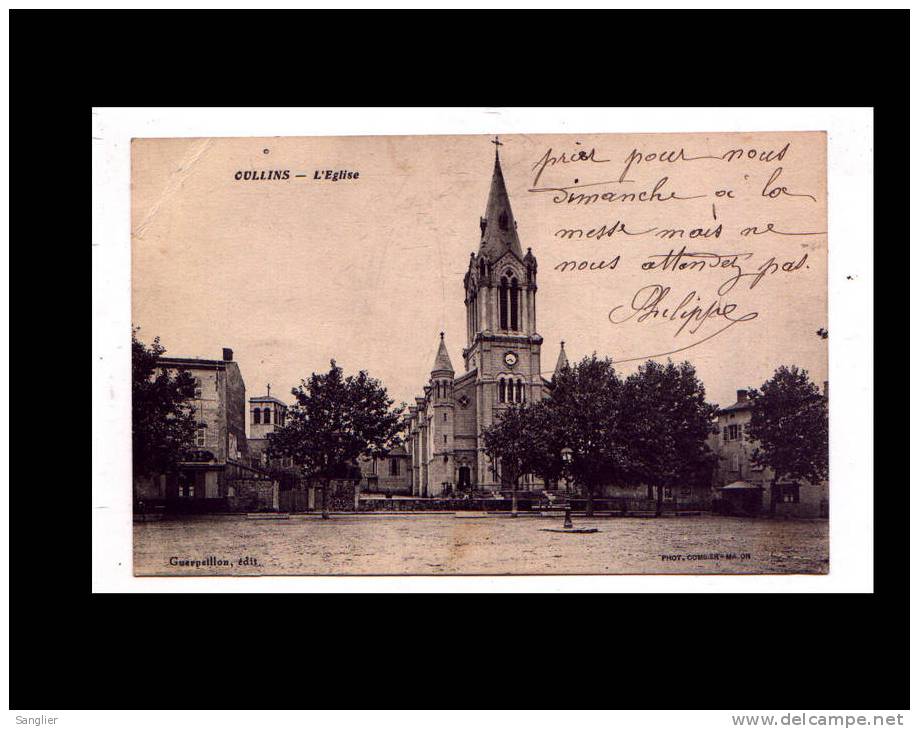 OULLINS — L'Eglise
prier pour nous
dimanche à la
messe mais ne
nous attendez pas.
Philippe
Guerpillon, édit.
PHOT. COMBIER MACON
Sanglier
www.delcampe.net